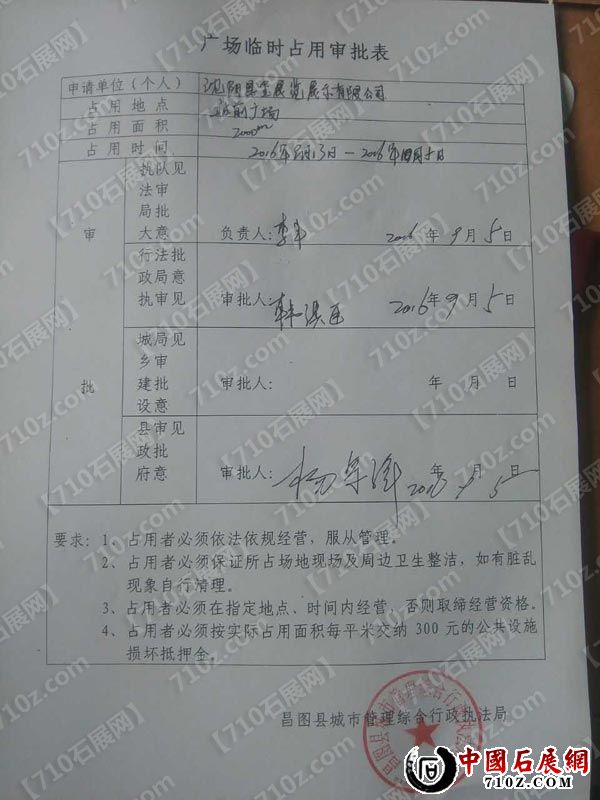 广场临时占用审批表
申请单位(个人) 沈阳昱呈展览展示有限公司
占用地点 站前广场
占用面积 2000m
占用时间
审批
执队见
法审
局批
大意 负责人: 2016年9月5日
行法批
政局意
执审见 审批人: 2016年9月5日
城局见
乡审
建批
设意 审批人: 年 月 日
县审见
政批
府意 审批人: 2016年9月5日
要求:1、占用者必须依法依规经营,服从管理。
2、占用者必须保证所占场地现场及周边卫生整洁,如有脏乱
现象自行清理。
3、占用者必须在指定地点、时间内经营,否则取缔经营资格。
4、占用者必须按实际占用面积每平米交纳 300 元的公共设施
损坏抵押金。
昌图县城市管理综合行政执法局
中國石展網
710Z.COM
【710石展网】
710z.com